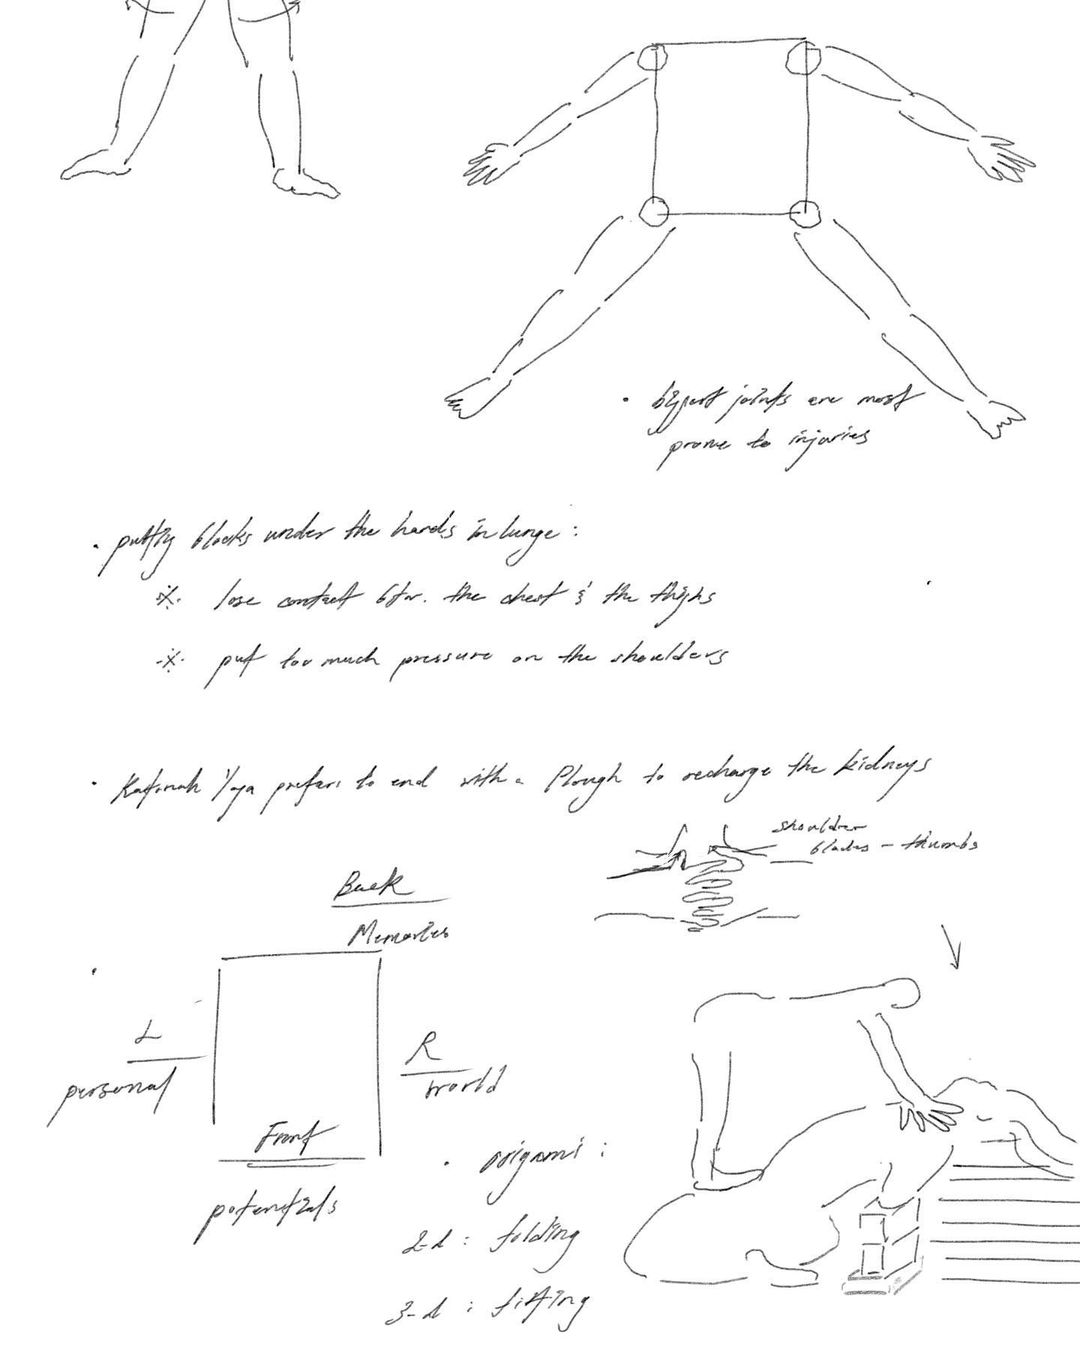 • biggest joints are most
prone to injuries
• putting blocks under the hands in lunge :
※ lose contact btw. the chest & the thighs
※ put too much pressure on the shoulders
• Katonah Yoga prefers to end with a Plough to recharge the kidneys
shoulder
blades - thumbs
Back
Memories
L
personal
R
world
Front
potentials
• origami :
2-d : folding
3-d : fitting